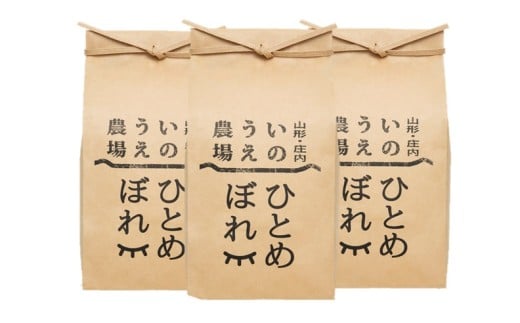 山形・庄内
いの
うえ
農場
ひとめ
ぼれ
山形・庄内
いの
うえ
農場
ひとめ
ぼれ
山形・庄内
いの
うえ
農場
ひとめ
ぼれ